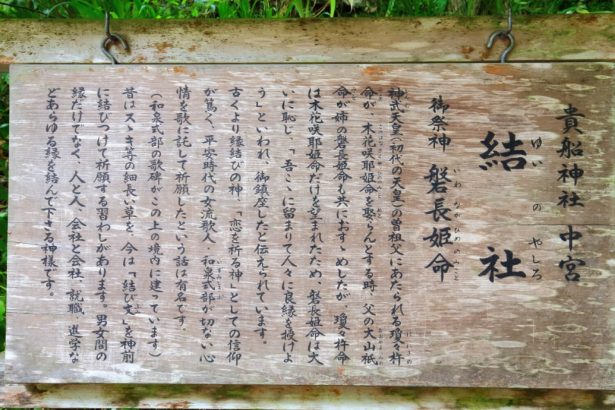 貴船神社 中宮
ゆいのやしろ
結社
いわながひめのみこと
御祭神 磐長姫命
神武天皇（初代の天皇）の曽祖父にあたられる瓊々杵
命が、木花咲耶姫命を娶らんとする時、父の大山祇
命が姉の磐長姫命も共におすゝめしたが、瓊々杵命
は木花咲耶姫命だけを望まれたため、磐長姫命は大
いに恥じ、「吾こゝに留まりて人々に良縁を授けよ
う」といわれ、御鎮座したと伝えられています。
古くより縁結びの神、「恋を祈る神」としての信仰
が篤く、平安時代の女流歌人・和泉式部が切ない心
情を歌に託して祈願したという話は有名です。
（和泉式部の歌碑がこの上の境内に建っています）
昔はスゝき等の細長い草を、今は「結び文」を神前
に結びつけて祈願する習わしがあります。男女間の
縁だけでなく、人と人、会社と会社、就職、進学な
どあらゆる縁を結んで下さる神様です。